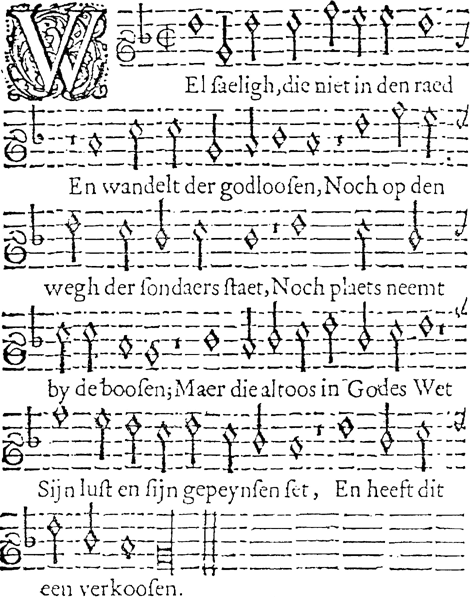 WEl saeligh, die niet in den raed
En wandelt der godloosen, Noch op den
wegh der sondaers staet, Noch plaets neemt
by de boosen; Maer die altoos in Godes Wet
Sijn lust en sijn gepeynsen set, En heeft dit
een verkoosen.